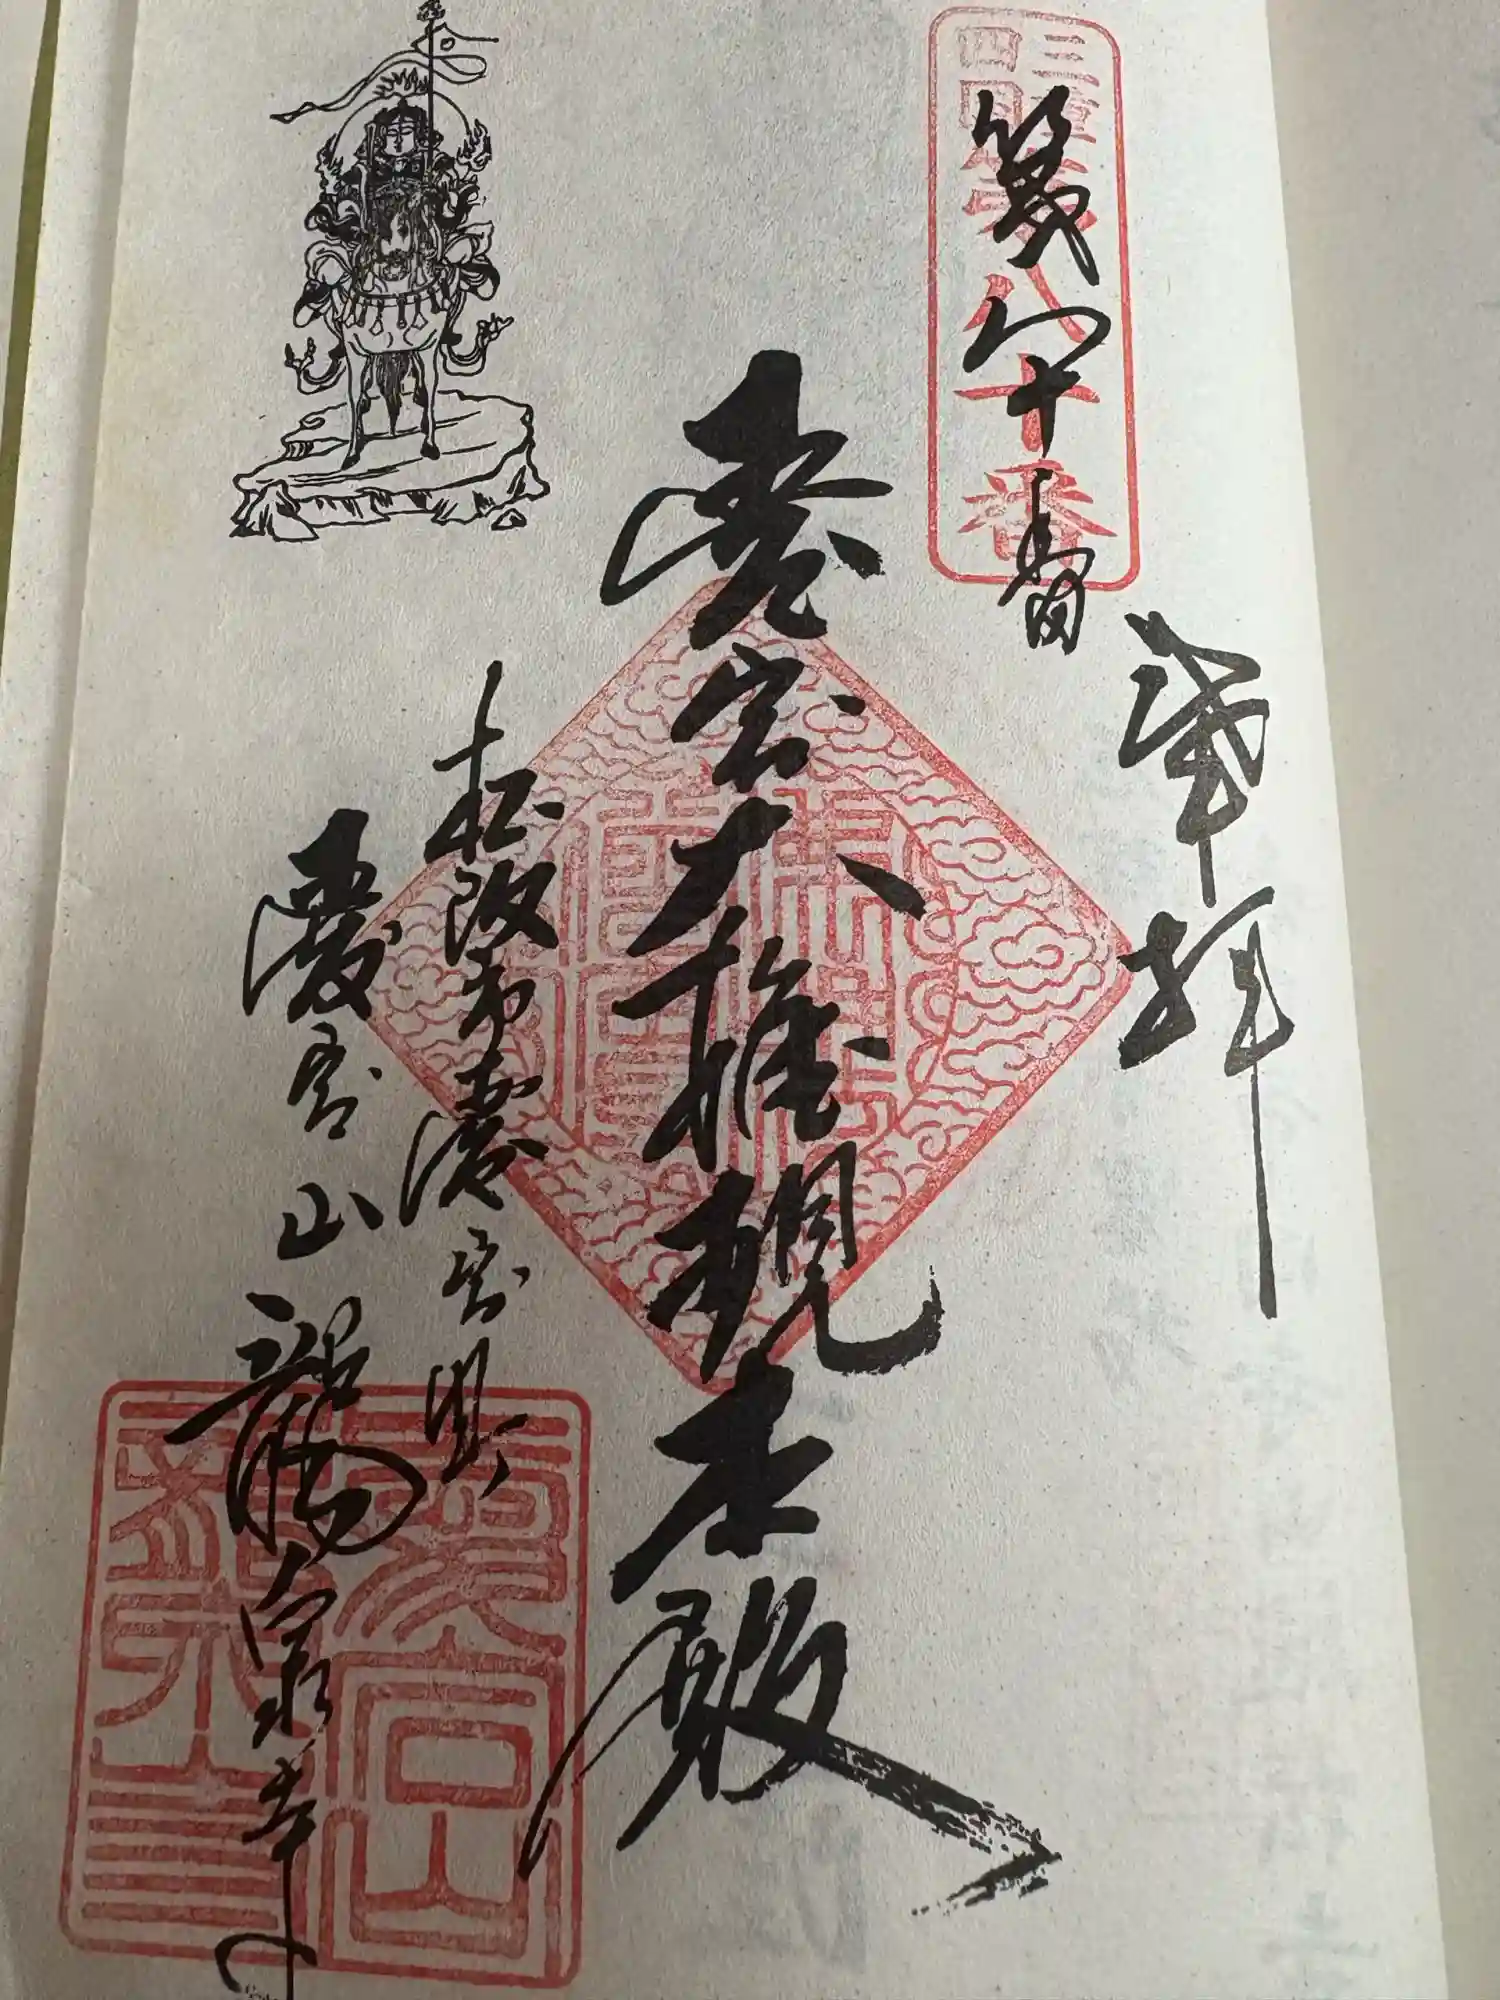 三重
四国
第八十番
奉拝
第八十番
愛宕大権現本殿
松阪市愛宕町
愛宕山龍泉寺
愛宕山
龍泉寺